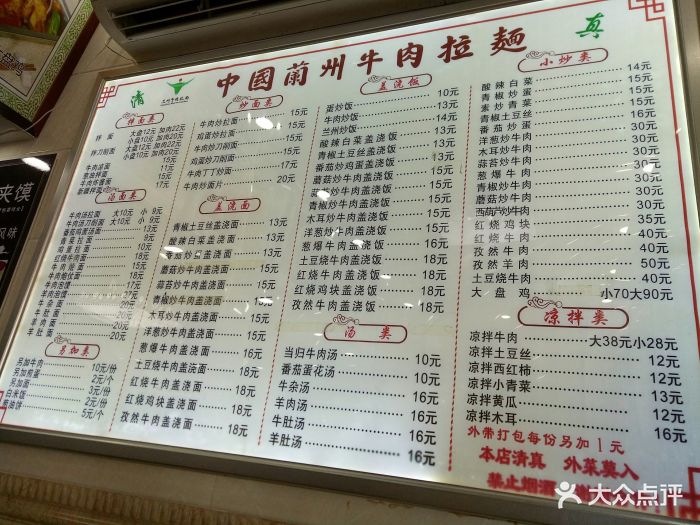 中國蘭州牛肉拉麵
清
真
拌面类
拌面 大盘12元 加肉22元
小盘10元 加肉20元
拌刀削面 大盘12元 加肉22元
小盘10元 加肉20元
牛肉凉面 15元
葱油拌面 11元
牛肉炸酱面 17元
新疆拌面 15元
汤面类
牛肉汤拉面 大10元 小9元
牛肉汤刀削面 大10元 小9元
番茄鸡蛋汤面 13元
青菜拉面 9元
鸡蛋拉面
红烧牛肉面 18元
牛肉烩面 15元
牛肉炮仗面 18元
牛肉泡馍 17元
羊肉泡馍 20元
牛杂面 20元
牛肚面 20元
羊肉面 20元
羊肚面 20元
另加类
另加牛肉 10元/份
另加煎蛋 2元/个
另加面 3元/份
白米饭 2元/份
5元/个
炒面类
牛肉炒拉面 15元
鸡蛋炒拉面 15元
牛肉炒刀削面 15元
鸡蛋炒刀削面 15元
牛肉丁丁炒面 17元
牛肉炒面片 20元
盖浇面
青椒土豆丝盖浇面 13元
酸辣白菜盖浇面 13元
番茄炒蛋盖浇面 15元
蘑菇炒牛肉盖浇面 15元
蒜苔炒牛肉盖浇面 15元
青椒炒牛肉盖浇面 15元
木耳炒牛肉盖浇面 15元
洋葱炒牛肉盖浇面 15元
葱爆牛肉盖浇面 16元
土豆烧牛肉盖浇面 18元
红烧牛肉盖浇面 18元
红烧鸡块盖浇面 18元
孜然牛肉盖浇面 18元
盖浇饭
蛋炒饭 10元
牛肉炒饭 14元
兰州炒饭
酸辣白菜盖浇饭 13元
青椒土豆丝盖浇饭 13元
番茄炒鸡蛋盖浇饭 15元
蘑菇炒牛肉盖浇饭 15元
蒜苔炒牛肉盖浇饭 15元
青椒炒牛肉盖浇饭 15元
木耳炒牛肉盖浇饭 15元
洋葱炒牛肉盖浇饭 15元
葱爆牛肉盖浇饭 16元
土豆烧牛肉盖浇饭 18元
红烧牛肉盖浇饭 18元
红烧鸡块盖浇饭 18元
孜然牛肉盖浇饭 18元
汤类
当归牛肉汤 10元
番茄蛋花汤 10元
牛杂汤 16元
羊肉汤 16元
牛肚汤 16元
羊肚汤 16元
小炒类
酸辣白菜 14元
青椒炒蛋
素炒青菜
青椒土豆丝
番茄炒蛋
洋葱炒牛肉 30元
木耳炒牛肉 30元
蒜苔炒牛肉 30元
葱爆牛肉 30元
青椒炒牛肉 30元
蘑菇炒牛肉 30元
西葫芦炒牛肉 30元
红烧鸡块 35元
红烧牛肉 40元
孜然牛肉 40元
孜然羊肉 50元
土豆烧牛肉 40元
大盘鸡 小70大90元
凉拌类
凉拌牛肉 大38元小28元
凉拌土豆丝 12元
凉拌西红柿 12元
凉拌小青菜 13元
凉拌黄瓜 12元
凉拌木耳 16元
外带打包每份另加1元
本店清真 外菜莫入
禁止烟酒
夹馍
风味
大众点评